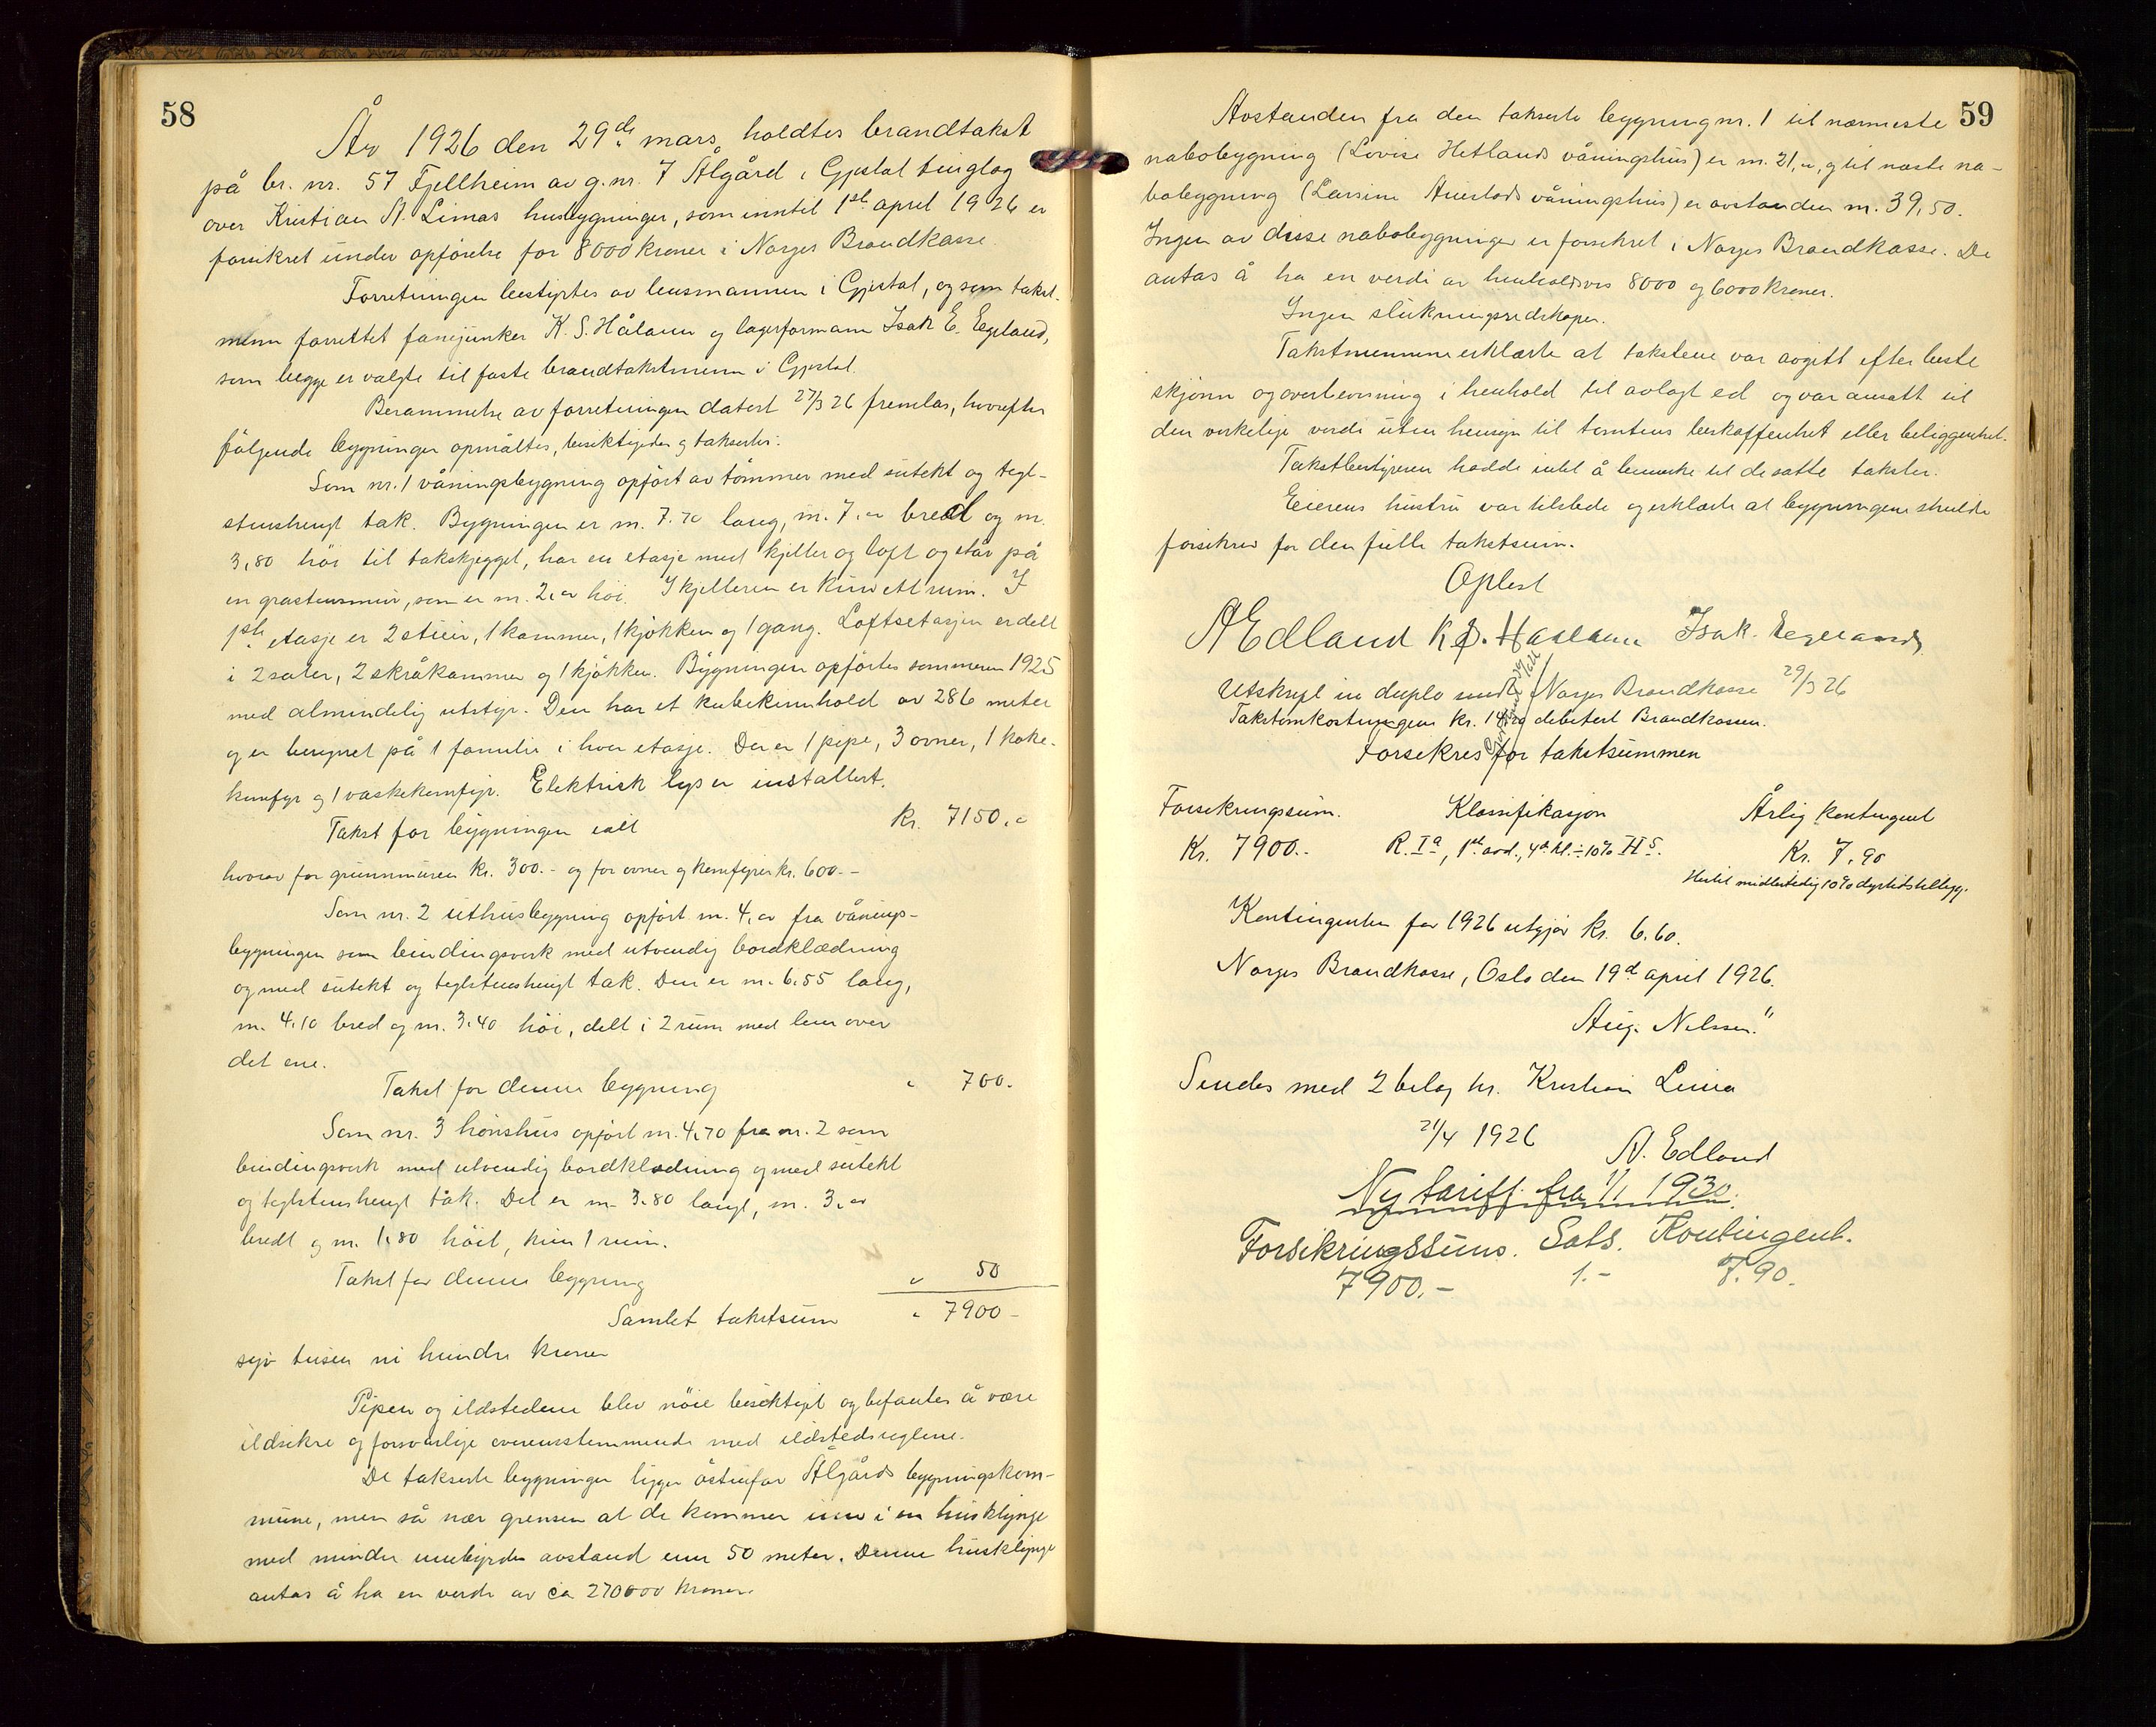 58
År 1926 den 29de mars holdtes brandtakst
på br. nr. 57 Fjellheim av g.nr. 7 Ålgård i Gjestal tinglag
over Kristian A. Limas husbygninger, som inntil 1ste april 1926 er
forsikret under opførelse for 8000 kroner i Norges Brandkasse.
Forretningen bestyrtes av lensmannen i Gjestal, og som takst-
menn forrettet fanejunker K. S. Håland og lagerformann Isak E. Egeland,
som begge er valgte til faste brandtakstmenn i Gjestal.
Berammelse av forretningen datert 27/3 26 fremlas, hvorefter
følgende bygninger opmåltes, besiktigedes og taksertes:
Som nr. 1 våningsbygning opført av tømmer med sutekt og tegl-
stenshengt tak. Bygningen er m. 7.70 lang, m. 7.00 bred og m.
3.80 høi til takskjegget, har en etasje med kjeller og loft og står på
en gråstensmur, som er m. 2.00 høi. I kjelleren er kun ett rum. I
1ste etasje er 2 stuer, 1 kammer, 1 kjøkken og 1 gang. Loftsetasjen er delt
i 2 saler, 2 skråkammer og 1 kjøkken. Bygningen opførtes sommeren 1925
med almindelig utstyr. Den har et kubikkinnhold av 286 meter
og er beregnet på 1 familie i hver etasje. Der er 1 pipe, 3 ovner, 1 koke-
komfyr og 1 vaskekomfyr. Elektrisk lys er installert.
Takst for bygningen ialt kr. 7150.00
hvorav for grunnmuren kr. 300.- og for ovner og komfyrer kr. 600.-
Som nr. 2 uthusbygning opført m. 4.00 fra vånings-
bygningen som bindingsverk med utvendig bordklædning
og med sutekt og teglstenshengt tak. Den er m. 6.55 lang,
m. 4.10 bred og m. 3.40 høi, delt i 2 rum med lem over
det ene.
Takst for denne bygning " 700.
Som nr. 3 hønshus opført m. 4.70 fra nr. 2 som
bindingsverk med utvendig bordklædning og med sutekt
og teglstenshengt tak. Det er m. 3.80 langt, m. 3.00
bredt og m. 1.80 høit, kun 1 rum.
Takst for denne bygning " 50
Samlet takstsum " 7900 -
syv tusen ni hundre kroner
Pipen og ildstedene blev nøie besiktiget og befantes å være
ildsikre og forsvarlige overensstemmende med ildstedsreglene.
De takserte bygninger ligger østenfor Ålgårds bygningskom-
mune, men så nær grensen at de kommer inn i en husklynge
med mindre innbyrdes avstand enn 50 meter. Denne husklynge
antas å ha en verdi av ca 270000 kroner.
59
Avstanden fra den takserte bygning nr. 1 til nærmeste
nabobygning (Lovise Hetlands våningshus) er m. 21,00, og til næste na-
bobygning (Larsine Auestads våningshus) er avstanden m. 39,50.
Ingen av disse nabobygninger er forsikret i Norges Brandkasse. De
antas å ha en verdi av henholdsvis 8000 og 6000 kroner.
Ingen slukningsredskaper.
Takstmennene erklærte at takstene var avgitt efter beste
skjønn og overbevisning i henhold til avlagt ed og var ansatt til
den virkelige verdi uten hensyn til tomtens beskaffenhet eller beliggenhet.
Takstbestyreren hadde intet å bemerke til de satte takster.
Eierens hustru var tilstede og erklærte at bygningene skulde
forsikres for den fulle takstsum.
Oplest
A Edland K. S. Haaland Isak Egeland
Utskrift in duplo sendt Norges Brandkasse 29/3 26
Takstomkostningene kr. debitert Brandkassen.
Forsikres for takstsummen
Forsikringssum. Klassifikasjon Årlig kontingent
Kr. 7900.- R. Ia, 1ste avd., 4de kl. ÷ 10% HS. Kr. 7.90
Hertil midlertidig 10% dyrtidstillegg.
Kontingenten for 1926 utgjør kr. 6.60.
Norges Brandkasse, Oslo den 19de april 1926.
Aug. Nilssen."
Sendes med 2 bilag hr. Kristian Lima
21/4 1926 A. Edland
Ny tariff fra 1/1 1930.
Forsikringssum. Sats. Kontingent.
7900.- 1.- 7.90.